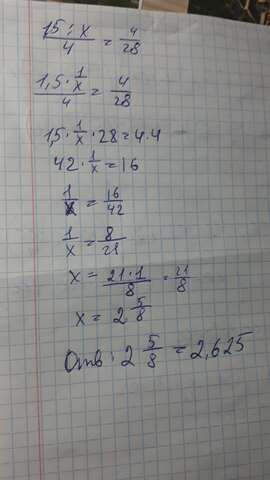 1,5 : x / 4 = 4/28
1,5 · 1/x / 4 = 4/28
1,5 · 1/x · 28 = 4·4
42 · 1/x = 16
1/x = 16/42
1/x = 8/21
x = 21·1/8 = 21/8
x = 2 5/8
Отв: 2 5/8 = 2,625